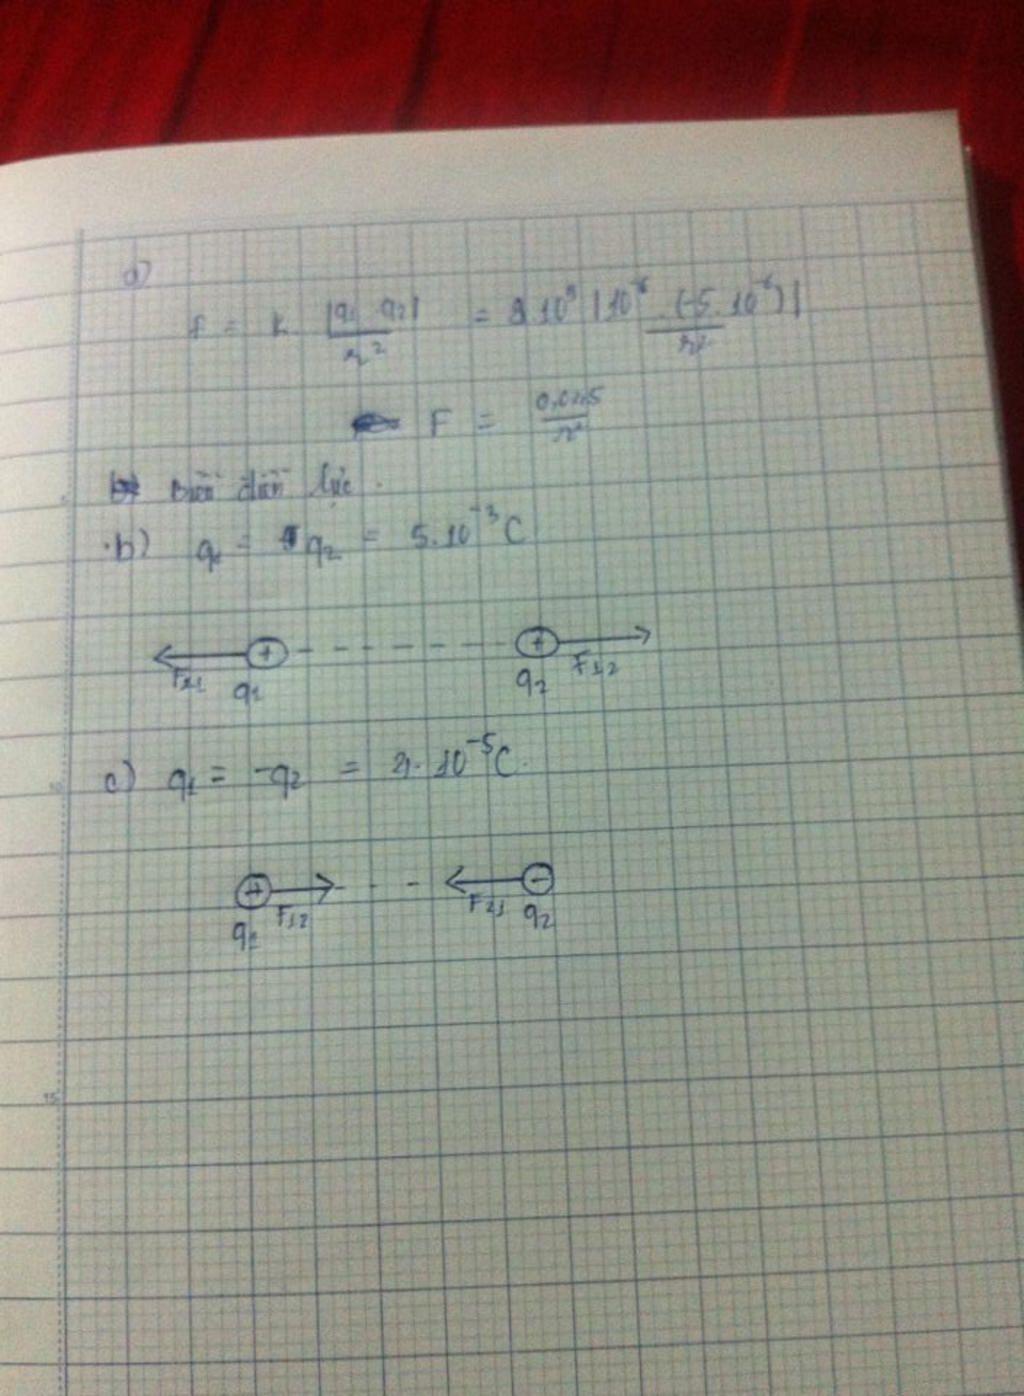 a)
F = k. |q1 q2| / r² = 9.10⁹ |10⁻⁶ . (-5.10⁻⁶)| / r²
F = / r²
Biễu diễn lực.
b) q1 = q2 = 5.10⁻³ C
+ +
F21 q1 q2 F12
c) q1 = -q2 = 4.10⁻⁵ C.
+ −
q1 F12 F21 q2
10
15